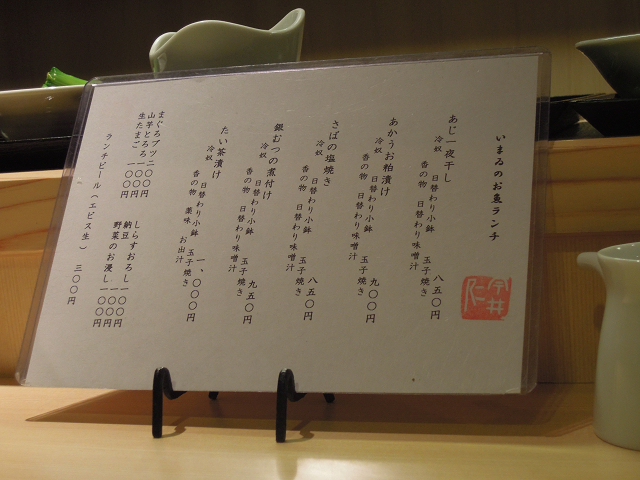 いまゐのお昼ランチ
あじ一夜干し
冷奴 日替わり小鉢 玉子焼き
香の物 日替わり味噌汁
八五〇円
あかうお粕漬け
冷奴 日替わり小鉢 玉子焼き
香の物 日替わり味噌汁
九〇〇円
さばの塩焼き
冷奴 日替わり小鉢 玉子焼き
香の物 日替わり味噌汁
八五〇円
銀むつの煮付け
冷奴 日替わり小鉢 玉子焼き
香の物 日替わり味噌汁
九五〇円
たい茶漬け
冷奴 日替わり小鉢 玉子焼き
香の物 薬味 お出汁
一、〇〇〇円
まぐろブツ二〇〇円
山芋とろろ一〇〇円
生たまご 一〇〇円
しらすおろし一〇〇円
納豆 一〇〇円
野菜のお浸し一〇〇円
ランチビール(エビス生) 三〇〇円
今井